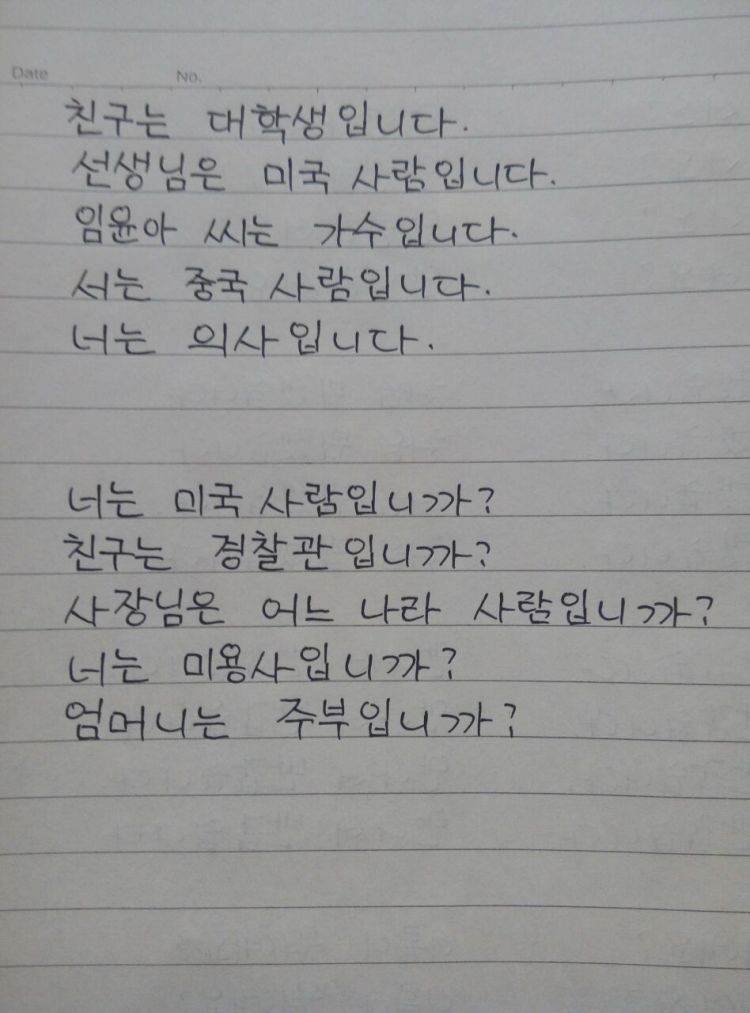 Date No.
친구는 대학생입니다.
선생님은 미국 사람입니다.
임윤아 씨는 가수입니다.
서는 중국 사람입니다.
너는 의사입니다.
너는 미국 사람입니까?
친구는 경찰관입니까?
사장님은 어느 나라 사람입니까?
너는 미용사입니까?
엄머니는 주부입니까?